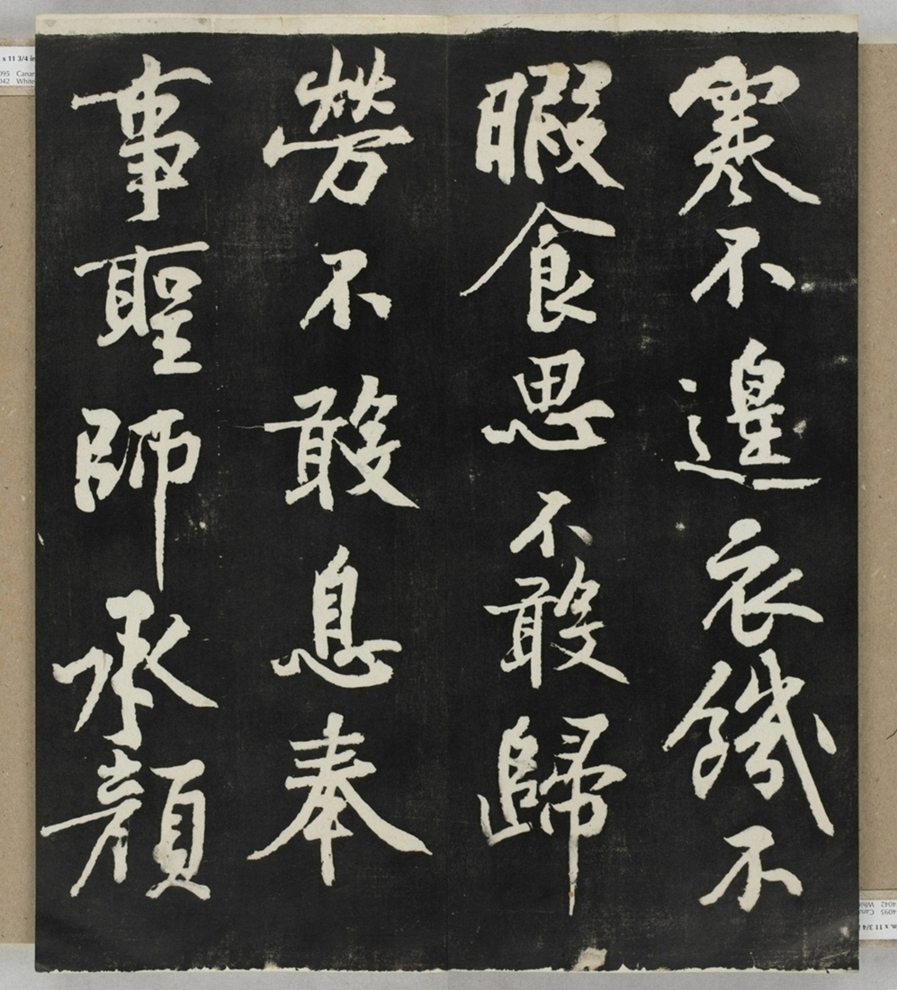 寒不遑衣饑不
暇食思不敢歸
勞不敢息奉
事聖師承顏
x 11 3/4 in